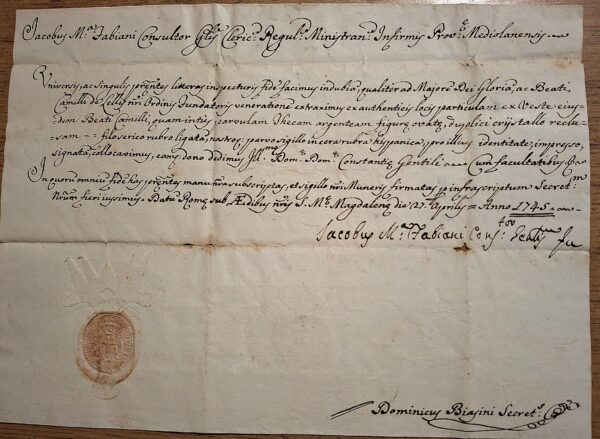 Jacobus M.ª Fabiani Consultor Glis Cleric.m Regul.m Ministran.m Infirmis Prov.æ Mediolanensis
Universis, ac Singulis p̃rentes litteras inspecturis fidẽ facimus indubiã, qualiter ad Majorẽ Dei Gloriã, ac Beati
Camilli de Lellis ñri Ordinis Fundatoris venerationẽ extraximus ex authenticis locis particulam ex Veste ejus
dem Beati Camilli, quam intùs parvulam Thecam argenteam figuræ ovatæ, duplici crystallo reclu
sam filo serico rubro ligatã, nostroq; parvo sigillo in cera rubra hispanica pro illius identitate impresso,
signatã, collocavimus, eamq; dono dedimus Ill.mæ Dom.æ Dom.æ Constantiæ Gentili Cum facultatibus
In quorũ omniũ fidẽ has p̃rentes manu ñra subscriptas, et sigillo ñri Muneris firmatas p infrascriptum Secret.m
Nr̃um fieri iussimus Datũ Romæ sub Ædibus ñris S. M.æ Magdalenæ die 27 Aprilis Anno 1745
Jacobus M.ª Fabiani Cons.tor
Dominicus Biasini Secret.s